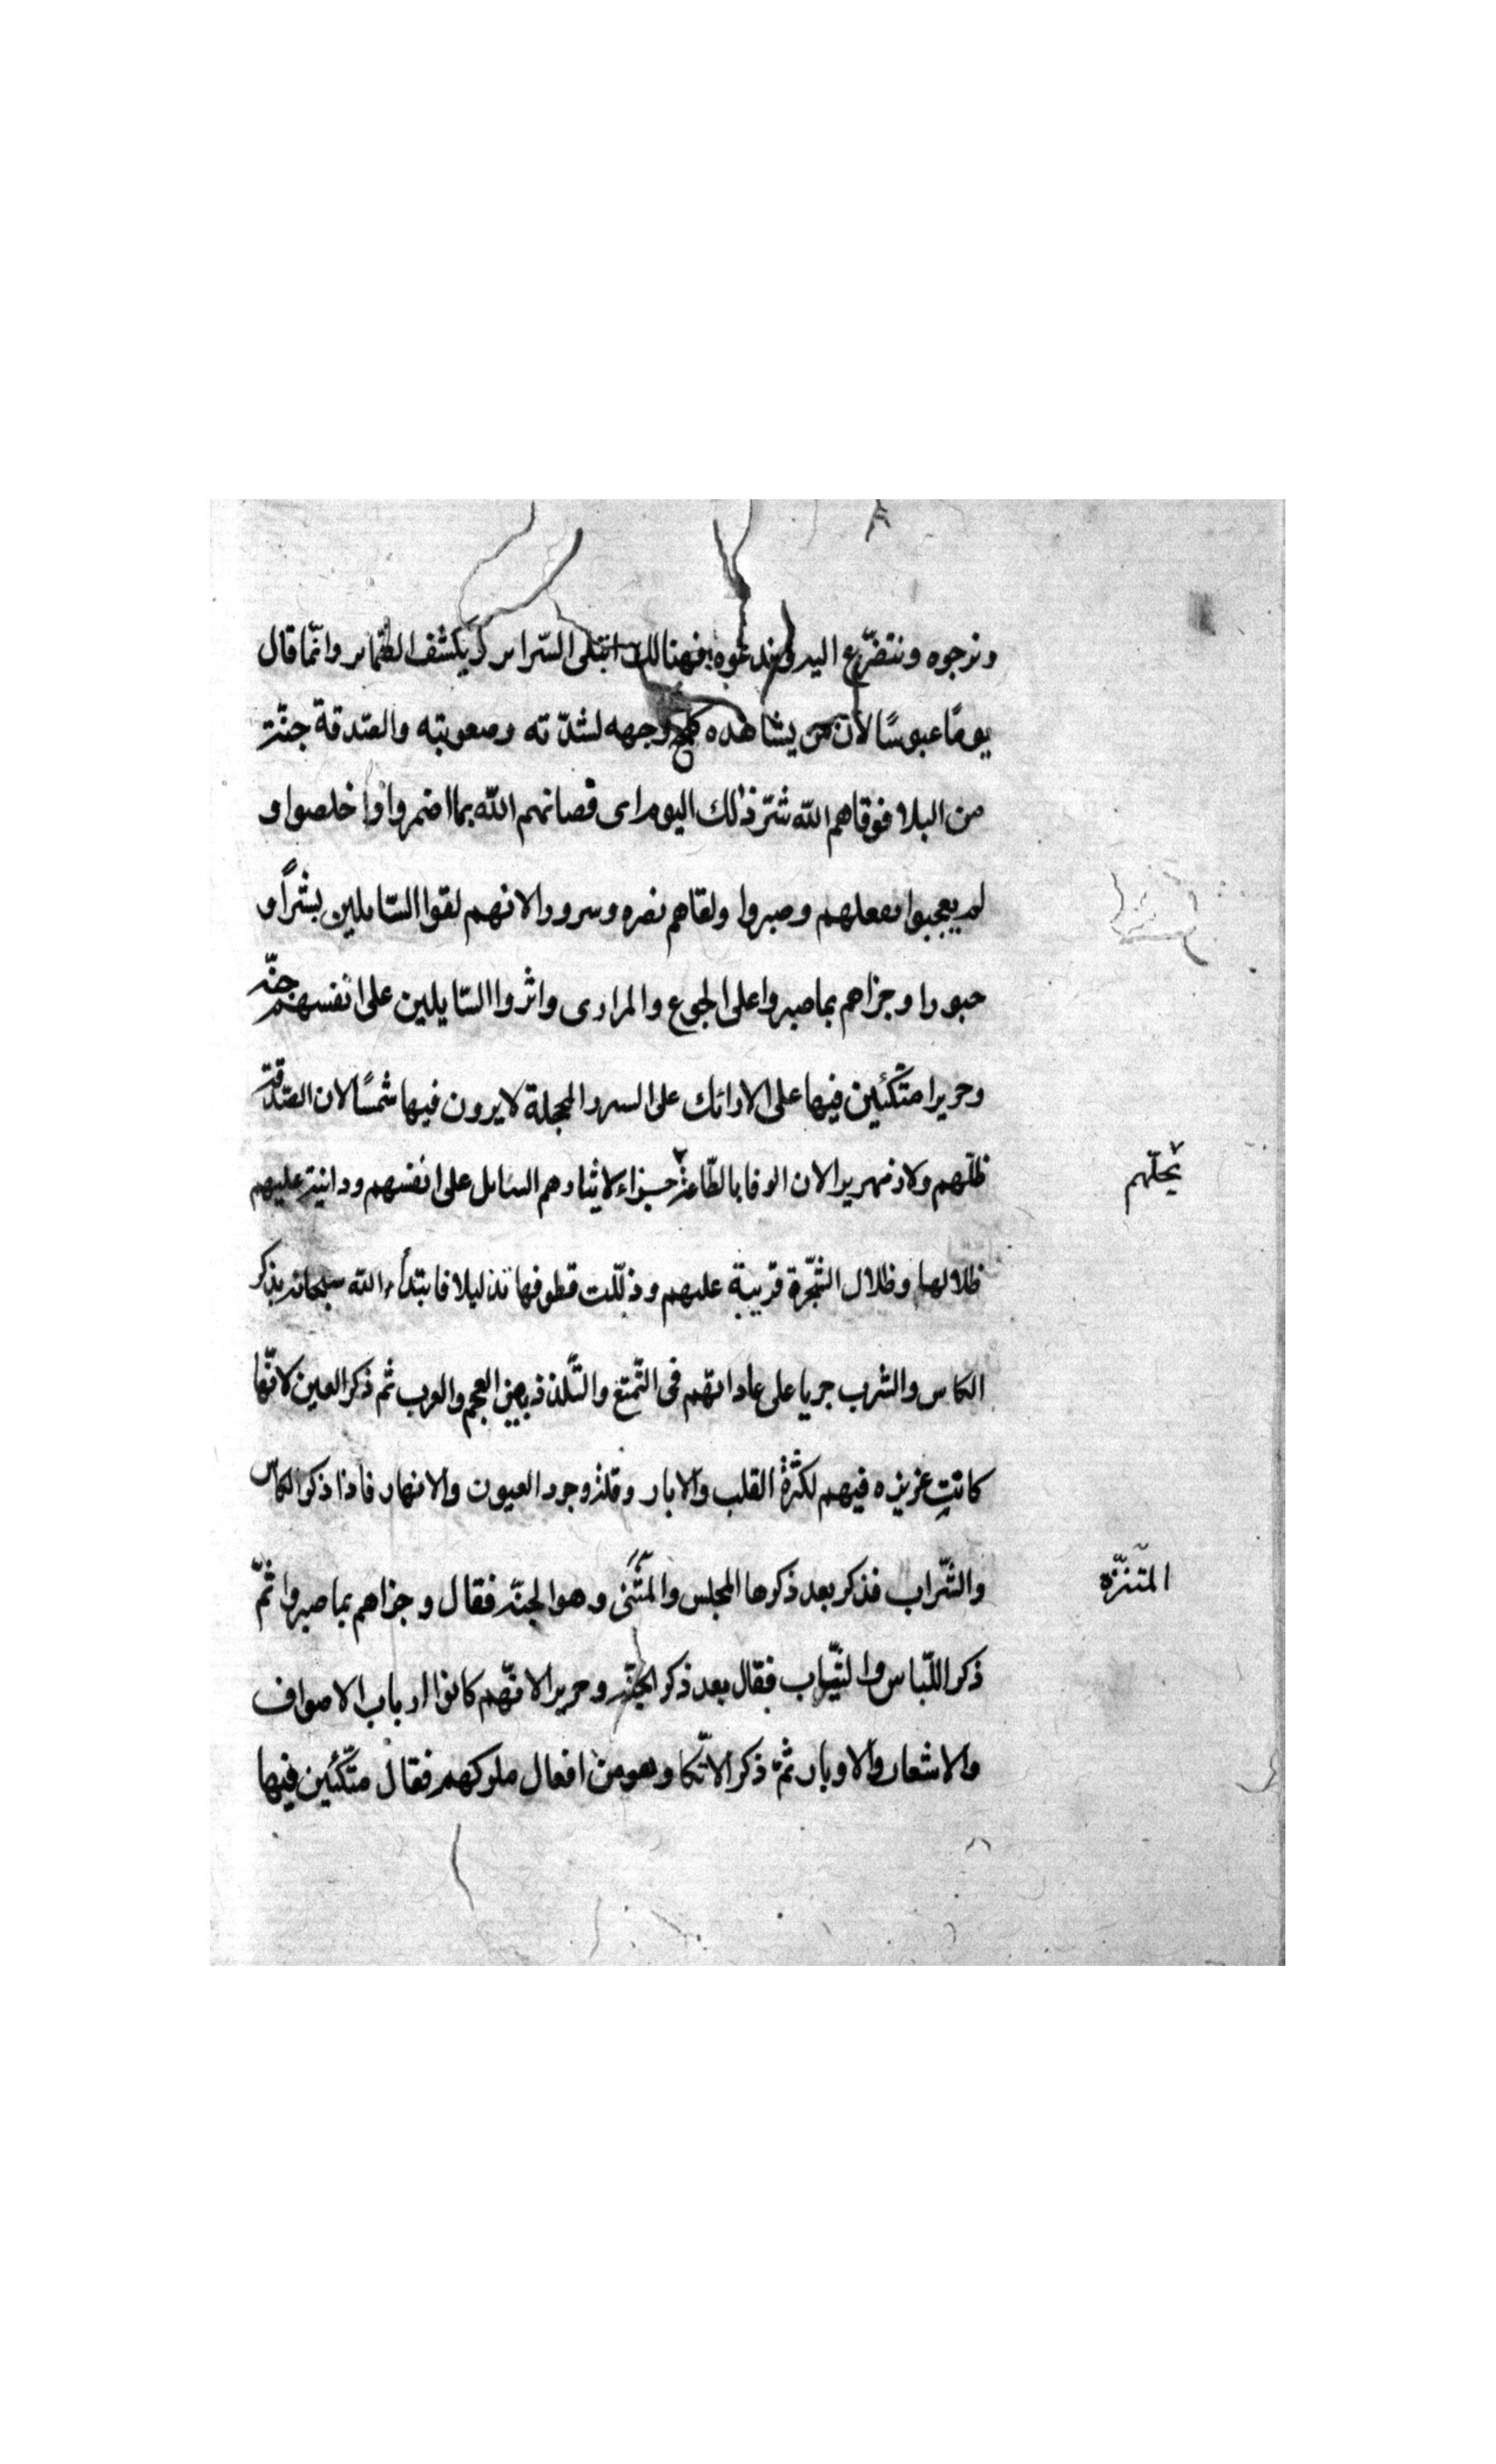 ونرجوه ونتضرّع اليه وندعوه فهنالك ابتلى السّراير ويكشف الضّماير وانّما قال
يومًا عبوسًا لان من يشاهده كلح وجهه لشدّته وصعوبته والصّدقة جنّة
من البلا فوقاهم الله شرّ ذلك اليوم اى فصانهم الله بما اضمروا واخلصوا و
لم يعجبوا بفعلهم وصبروا ولقاهم نضره وسرورا لانهم لقوا السّايلين بشرًا و
حبورا وجزاهم بما صبروا على الجوع والمرادى واثروا السّايلين على انفسهم جنّة
وحريرا متكئين فيها على الارائك على السرر المجلة لا يرون فيها شمسًا لان الصّدقة
ظلّهم ولا زمهريرا لان الوفا بالطّاعة جزاء لايثارهم السايل على انفسهم ودانية عليهم
تحلّهم
ظلالها وظلال الشّجرة قريبة عليهم وذلّلت قطوفها تذليلا فابتدأ الله سبحانه بذكر
الكاس والشرب جريا على عاداتهم فى التّمتع والتّلذذ بين العجم والعرب ثم ذكر العين لانّها
كانت عزيزه فيهم لكثرة القلب والابار وقلة وجود العيون والانهار فاذا ذكر الكاس
والشّراب فذكر بعد ذكرها المجلس وهو الجنّة فقال وجزاهم بما صبروا ثمّ
المتنزّه
ذكر اللّباس والثّياب فقال بعد ذكر الجنّة وحريرا لانّهم كانوا ارباب الاصواف
والاشعار والاوبار ثمّ ذكر الاتّكا وهو من افعال ملوكهم فقال متّكئين فيها